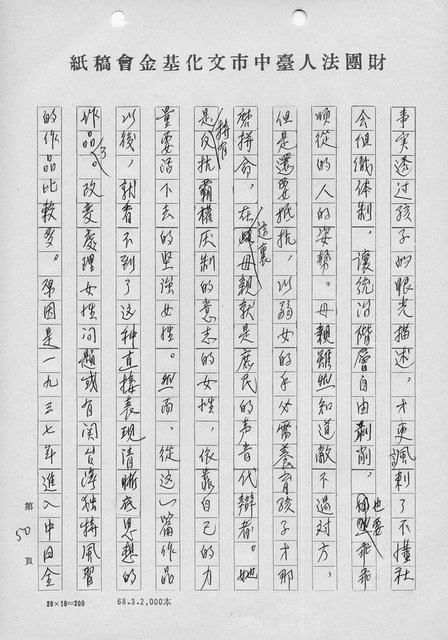 財團法人臺中市文化基金會稿紙
事实透过孩子的眼光描述,才更諷刺了不懂社
会组織体制,讓統治階層自由剝削,也要乖乖
順從的人的姿勢。母親雖然知道敵不過対方,
但是還要抵抗,以弱女的手必需養育孩子才那
麼拼命,在這裏母親就是庶民的声音代辯者。她
是持有反抗霸權压制的意志的女性,依靠自己的力
量要活下去的坚強女性。然而,從这一篇作品
以後,就看不到了这种直接表現清晰底思想的
作品了。改变處理女性问題或有关台湾独特風習
的作品比較多。原因是一九三七年進入中日全
第50頁
20×10=200
68.3.2,000本